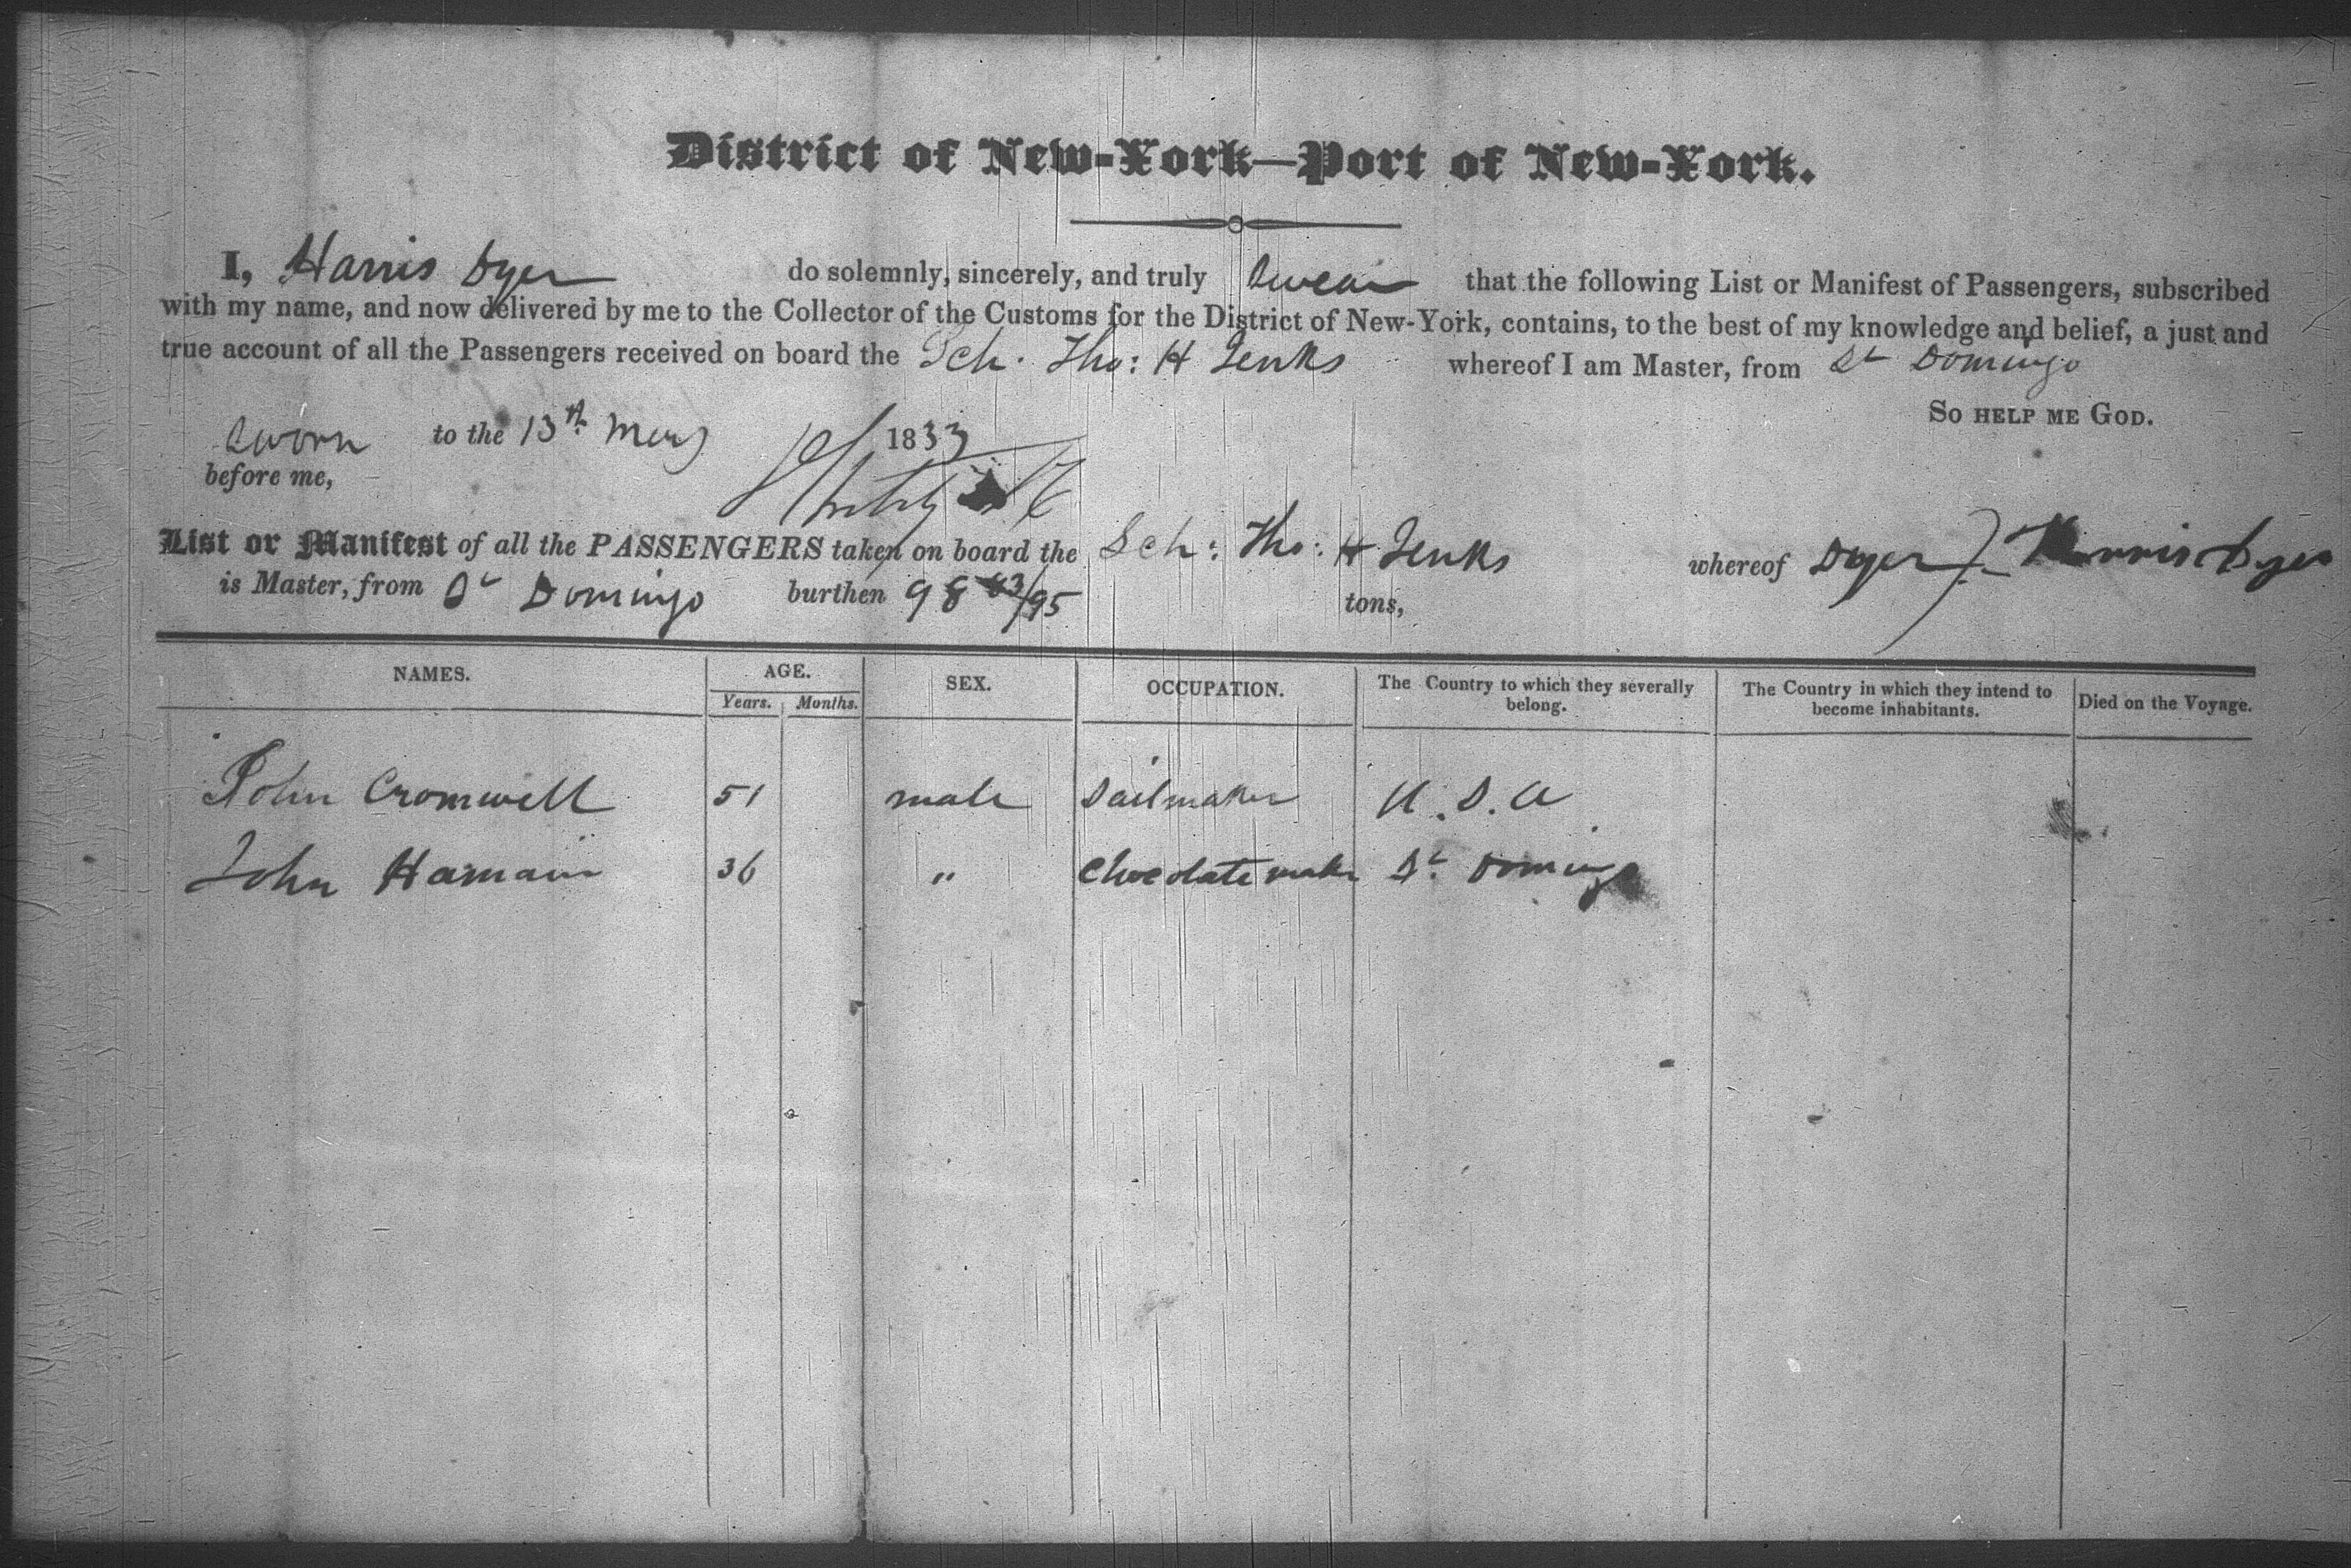 District of New-York—Port of New-York.
I, Harris Dyer do solemnly, sincerely, and truly Swear that the following List or Manifest of Passengers, subscribed
with my name, and now delivered by me to the Collector of the Customs for the District of New-York, contains, to the best of my knowledge and belief, a just and
true account of all the Passengers received on board the Sch. Tho: H Jenks whereof I am Master, from St Domingo
So help me God.
Sworn to the 13th May 1833
before me,
List or Manifest of all the PASSENGERS taken on board the Sch: Tho: H Jenks whereof Dyer Harris Dyer
is Master, from St Domingo burthen 98 83/95 tons,
NAMES. AGE. SEX. OCCUPATION. The Country to which they severally belong. The Country in which they intend to become inhabitants. Died on the Voyage.
Years. Months.
John Cromwell 51 male Sailmaker U.S.A
John Hamain 36 " Chocolate maker St Domingo